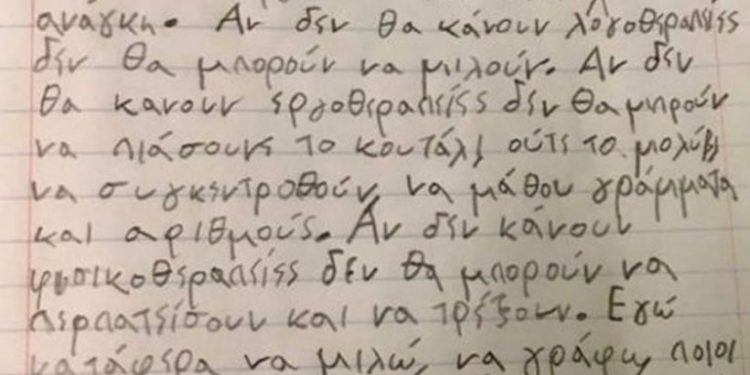 ανάγκη. Αν δεν θα κάνουν λογοθεραπείες
δεν θα μπορούν να μιλούν. Αν δεν
θα κανουν εργοθεραπείες δεν θα μπρούν
να πιάσουνε το κουτάλι ούτε το μολύβι
να συγκεντροθούν, να μάθου γράμματα
και αριθμούς. Αν δεν κάνουν
φυσικοθεραπείες δεν θα μπορούν να
περπατείσουν και να τρέξουν. Εγώ
κατάφερα να μιλώ, να γράφω, ποιοι